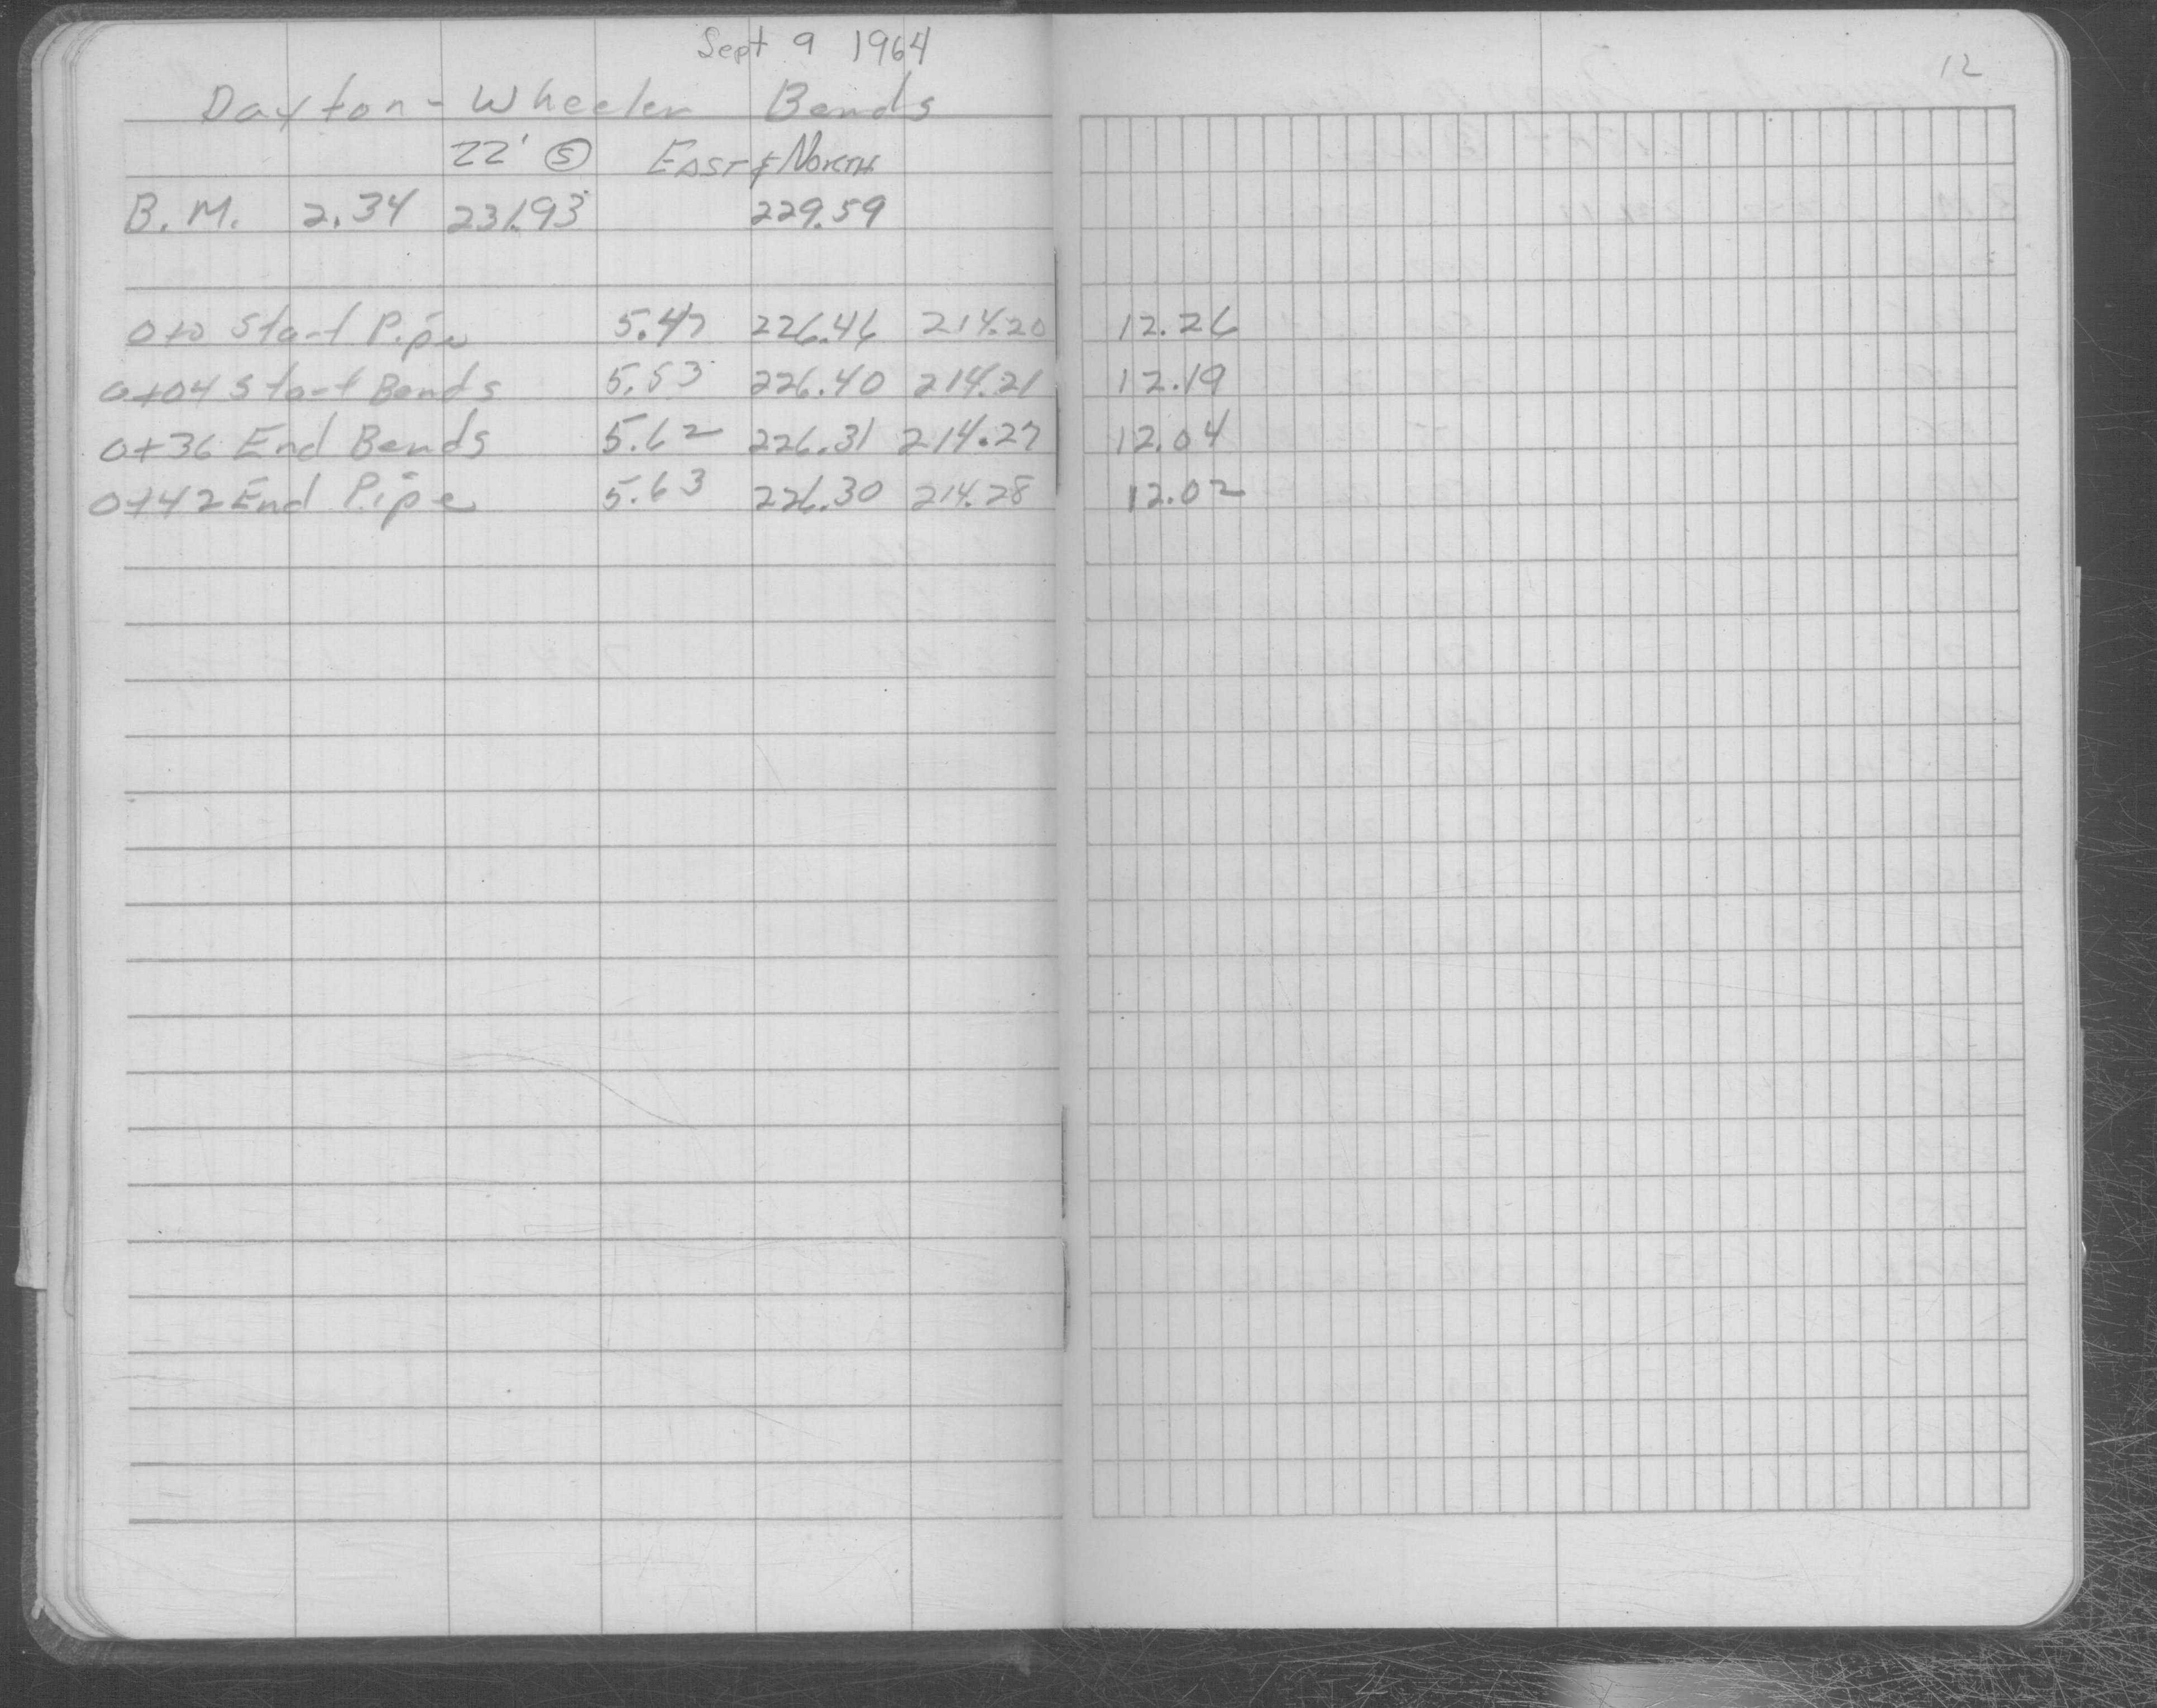 Sept 9 1964
12
Dayton - Wheeler Bends
22' ⑤ EAST & NORTH
B.M. 2.34 231.93 229.59
0+0 Start Pipe 5.47 226.46 214.20 12.26
0+04 Start Bends 5.53 226.40 214.21 12.19
0+36 End Bends 5.62 226.31 214.27 12.04
0+42 End Pipe 5.63 226.30 214.28 12.02